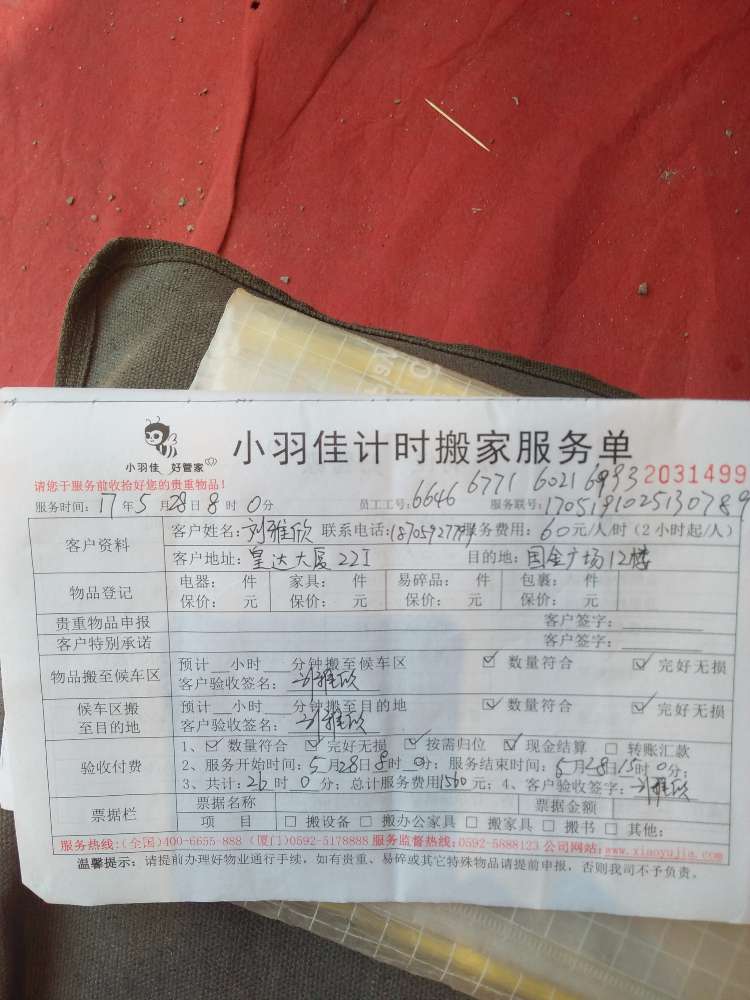 小羽佳 好管家
小羽佳计时搬家服务单
请您于服务前收拾好您的贵重物品！
6771 6021 6933 2031499
服务时间：17年5月28日8时0分 员工工号：6646 服务联号：1705191025130789
客户资料
客户姓名：刘雅欣 联系电话： 服务费用：60元/人/时（2小时起/人）
客户地址：皇达大厦22I 目的地：国金广场12楼
物品登记
电器： 件 家具： 件 易碎品： 件 包裹： 件
保价： 元 保价： 元 保价： 元 保价： 元
贵重物品申报 客户签字：
客户特别承诺 客户签字：
物品搬至候车区
预计__小时__分钟搬至候车区 ☑ 数量符合 ☑ 完好无损
客户验收签名：刘雅欣
候车区搬至目的地
预计__小时__分钟搬至目的地 ☑ 数量符合 ☑ 完好无损
客户验收签名：刘雅欣
验收付费
1、☑ 数量符合 ☑ 完好无损 ☑ 按需归位 ☑ 现金结算 □ 转账汇款
2、服务开始时间：5月28日8时0分；服务结束时间：5月28日15时0分；
3、共计：26时0分；总计服务费用1560元；4、客户验收签字：刘雅欣
票据栏
票据名称 票据金额
项 目 □ 搬设备 □ 搬办公家具 □ 搬家具 □ 搬书 □ 其他：
服务热线：(全国)400-6655-888 (厦门)0592-5178888 服务监督热线：0592-5888123 公司网站：www.xiaoyujia.com
温馨提示：请提前办理好物业通行手续，如有贵重、易碎或其它特殊物品请提前申报，否则我司不予负责。